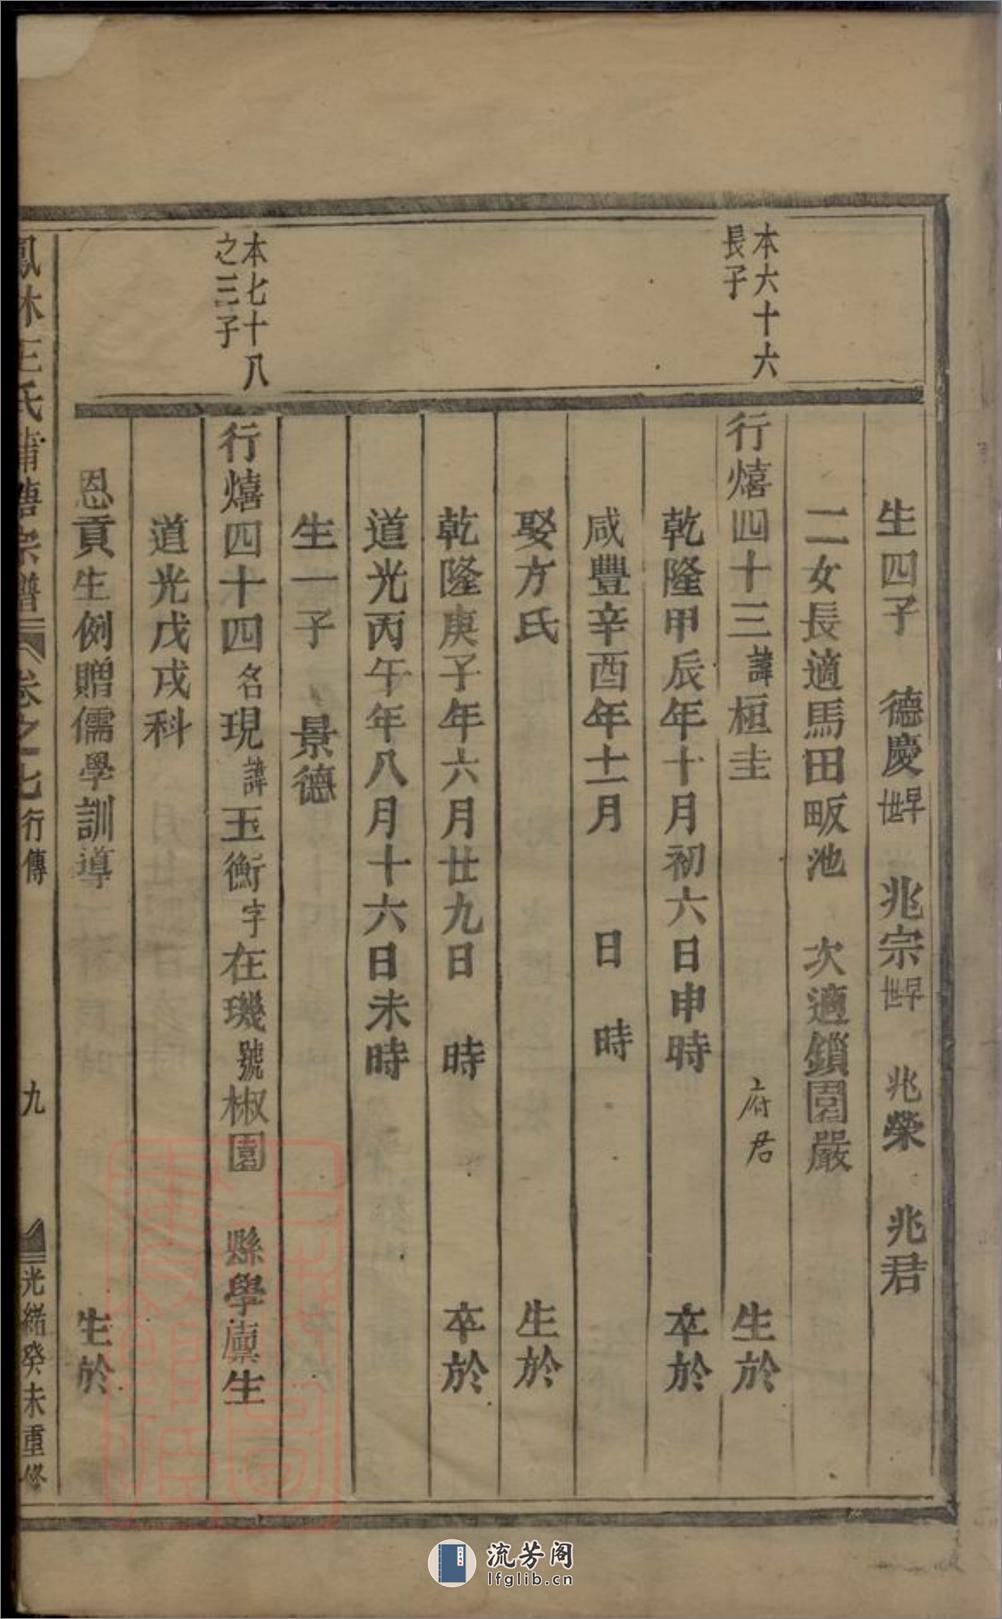 生四子 德慶早世 兆宗早世 兆榮 兆君
二女長適馬田畈池 次適鎖園嚴
本六十六
長子
行熺四十三諱桓圭 府君 生於
乾隆甲辰年十月初六日申時 卒於
咸豐辛酉年十一月 日 時
娶方氏 生於
乾隆庚子年六月廿九日 時 卒於
道光丙午年八月十六日未時
生一子 景德
本七十八
之三子
行熺四十四名現諱玉衡字在璣號椒園 縣學廩生
道光戊戌科
恩貢生例贈儒學訓導 生於
鳳林王氏蒲塘宗譜 卷之七行傳 九 光緒癸未重修
流芳阁
lfglib.cn